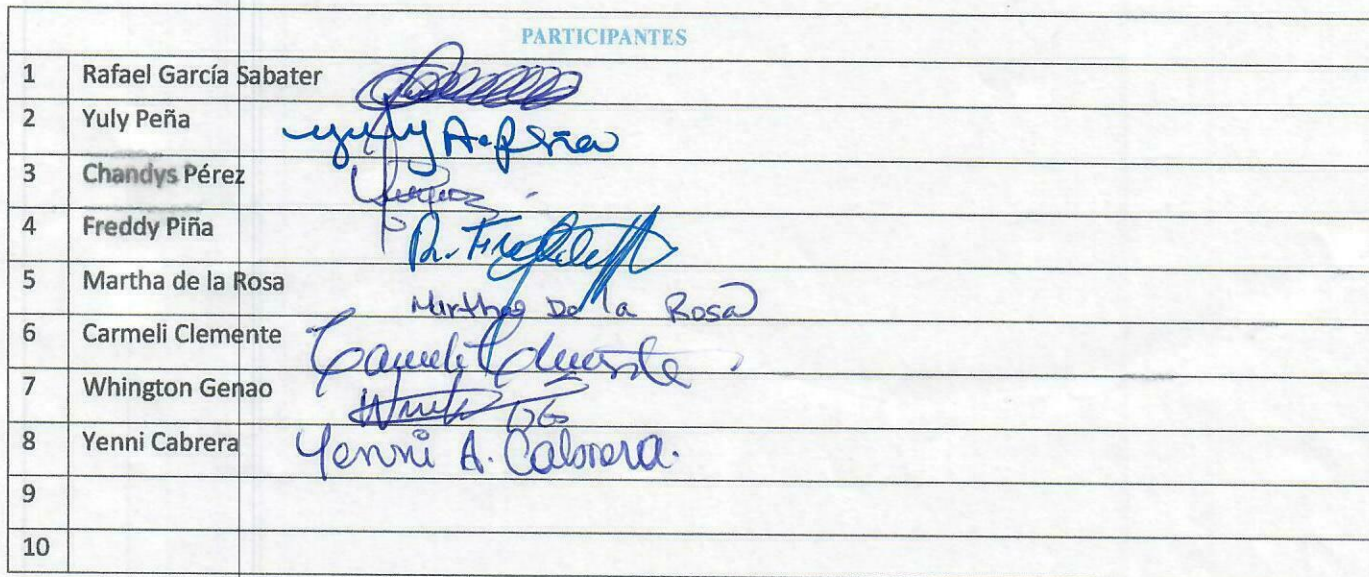 PARTICIPANTES
1 Rafael García Sabater
2 Yuly Peña Yuly A. Peña
3 Chandys Pérez
4 Freddy Piña
5 Martha de la Rosa Martha De la Rosa
6 Carmeli Clemente Carmeli Clemente
7 Whington Genao
8 Yenni Cabrera Yenni A. Cabrera.
9
10